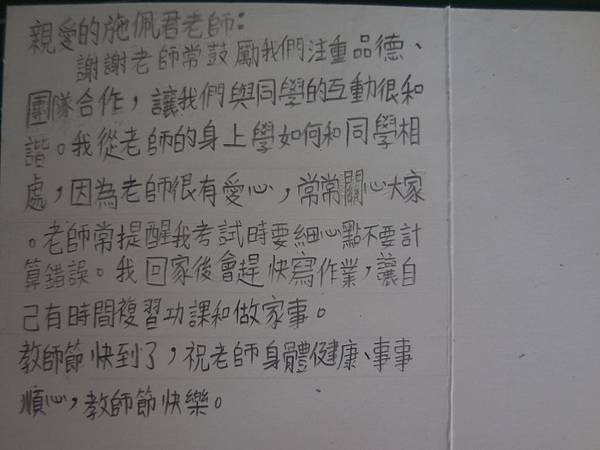 親愛的施佩君老師:
謝謝老師常鼓勵我們注重品德、
團隊合作,讓我們與同學的互動很和
諧。我從老師的身上學如何和同學相
處,因為老師很有愛心,常常關心大家
。老師常提醒我考試時要細心點不要計
算錯誤。我回家後會趕快寫作業,讓自
己有時間複習功課和做家事。
教師節快到了,祝老師身體健康、事事
順心,教師節快樂。